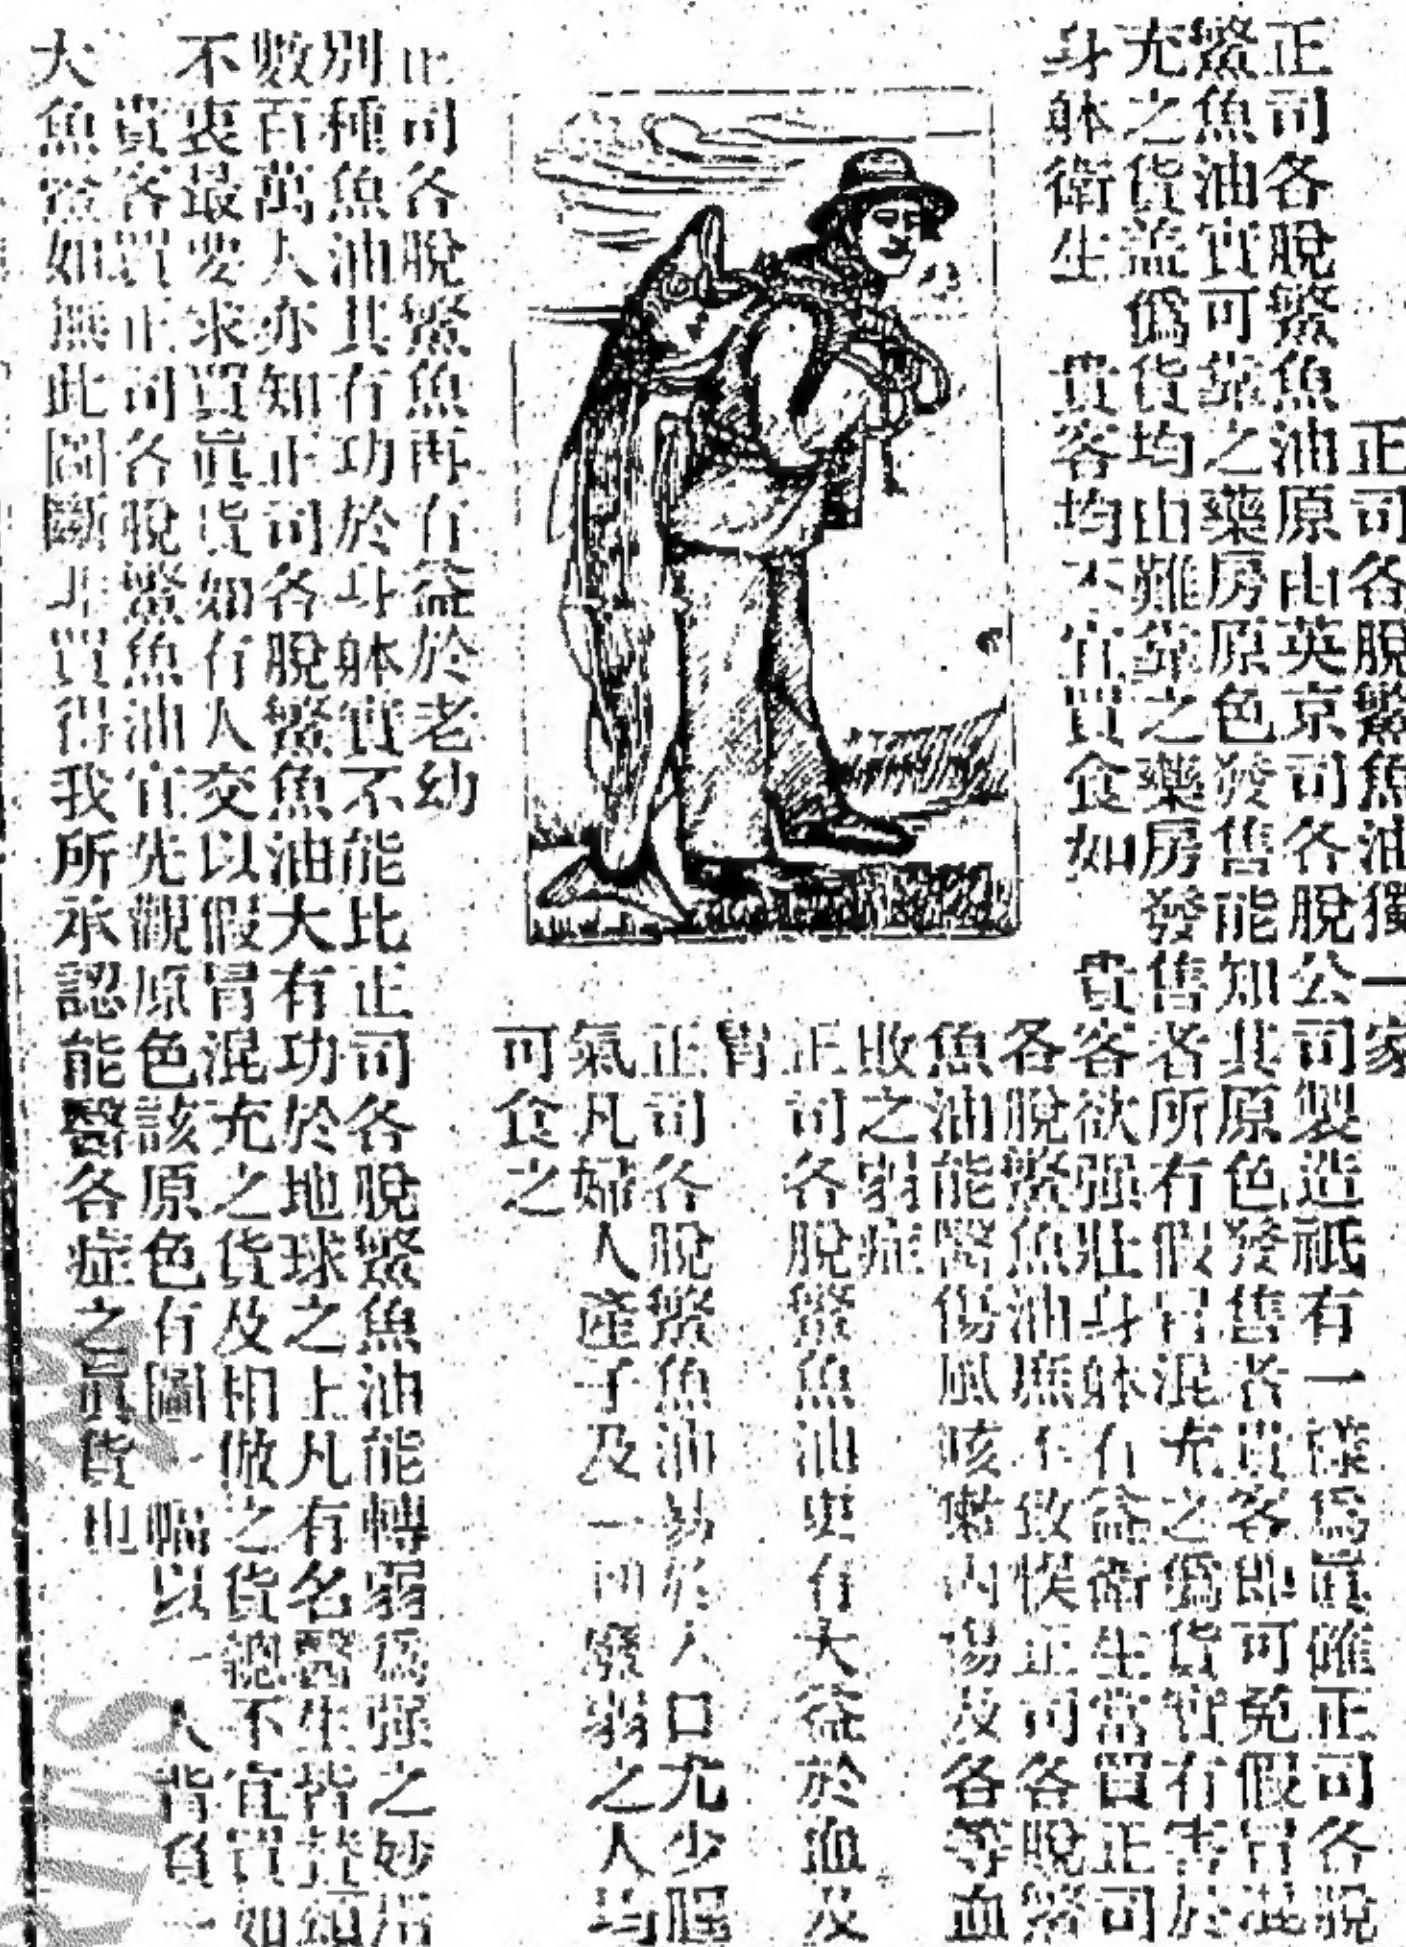 正司各脫鰵魚油獨一家
正司各脫鰵魚油原由英京司各脫公司製造祗有一樣爲眞確正司各脫
鰵魚油實可靠之藥房原色發售能知其原色發售者貴客即可免假冒混
充之貨蓋僞貨均由難靠之藥房發售者所有假冒混充之僞貨實有害於
身躰衛生 貴客均不宜買食如 貴客欲强壯身躰有益衛生當買正司
各脫鰵魚油庶不致悞正司各脫鰵
魚油能醫傷風咳嗽內傷及各等血
敗之弱症
正司各脫鰵魚油更有大益於血及
胃
正司各脫鰵魚油易於入口尤少腥
氣凡婦人產子及一切癆弱之人均
可食之
正司各脫鰵魚再有益於老幼
別種魚油其有功於身躰實不能比正司各脫鰵魚油能轉弱爲强之妙用
數百萬人亦知正司各脫鰵魚油大有功於地球之上凡有名醫生皆頌
不衰最要求買眞貨如有人交以假冒混充之貨及相倣之貨總不宜買如
貴客買正司各脫鰵魚油宜先觀原色該原色有圖一幅以一人背負一
大魚如無此圖斷非買得我所承認能醫各症之眞貨也